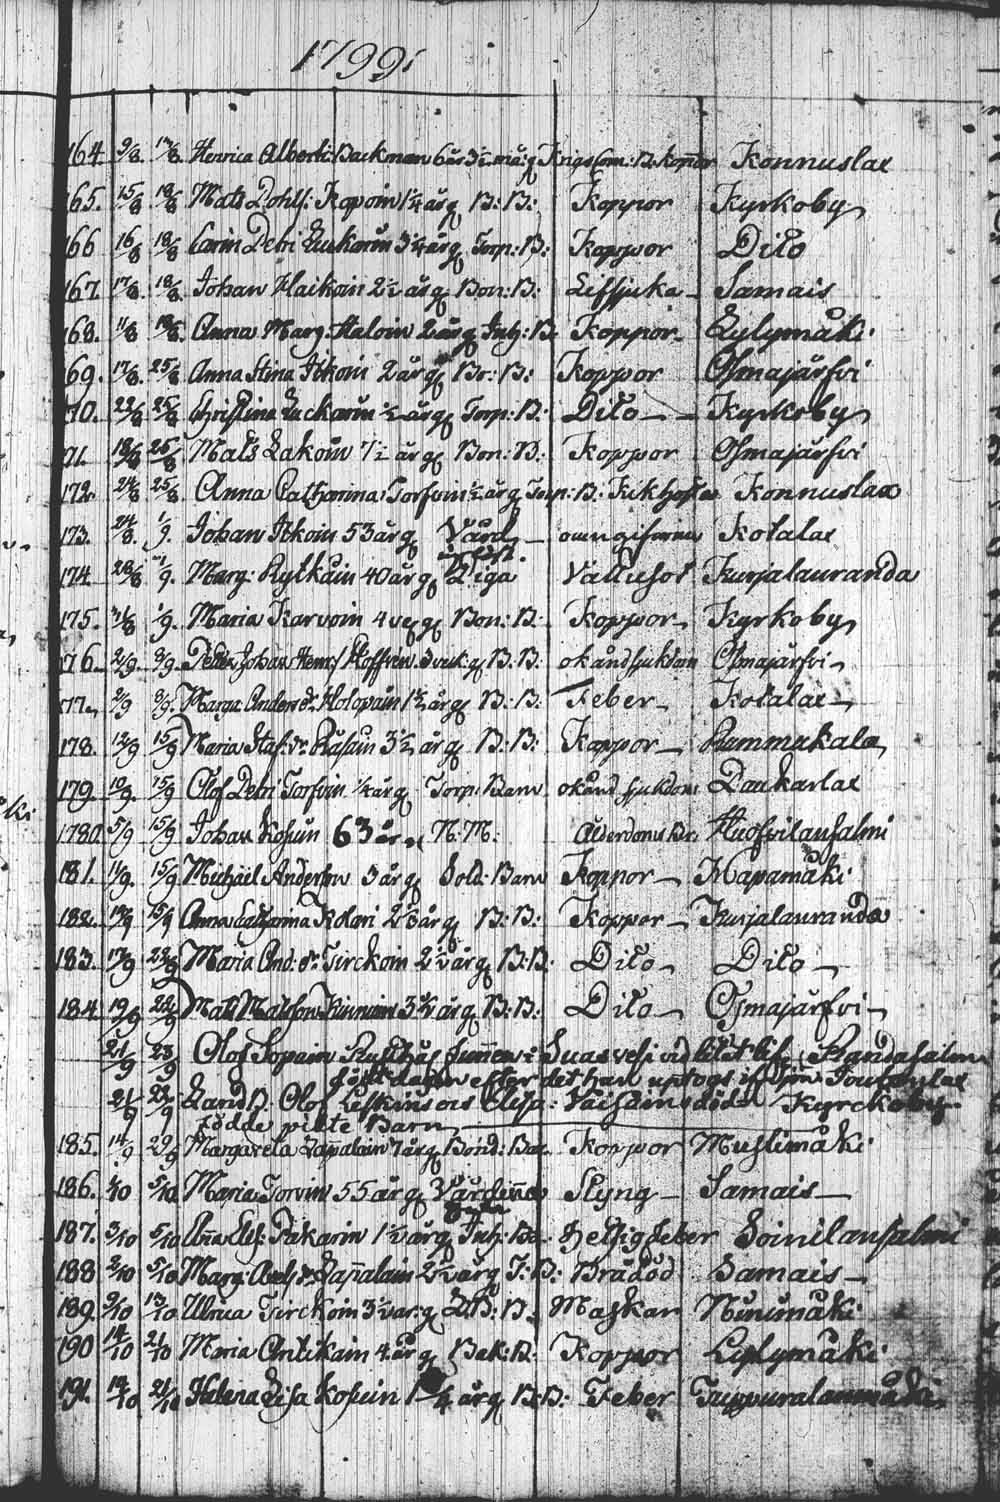 1799
164. 9/8. 17/8. Henrica Albertina Backman 6 år 3½ mån: Koppor Konnuslax
165. 15/8 18/8 Mats Dohlf: Kopoin 1¼ årg B: B: Koppor Kyrkoby
166 16/8 18/8 Carin Petri Luckarin 3¼ årg Torp: B: Koppor Dito
167. 17/8. 18/8. Johan Haikoin 2½ årg Bon: B: Lifsjuka Samais
168. 11/8 18/8. Anna Marg: Haloin 2 årg Inh: B. Koppor Lylymäki
169. 17/8. 25/8 Anna Stina Itkoin 2 årg Br: B: Koppor Osmajärfvi
170. 22/8 25/8 Christina Luckarin ½ årg Torp: B. Dito Kyrkoby
71. 18/8 25/8 Mats Lakoin 7½ årg Bon: B: Koppor Osmajärfvi
172 24/8 25/8. Anna Catharina Torfvin ½ årg Torp: B: Kikhosta Konnuslax
173. 24/8. 1/9. Johan Itkoin 53 årg Värd oangifwin Kotalax
174 28/8 1/9. Marg: Rytkäin 40 årg Piga Vattusot Kurjalauranda
175. 31/8 1/9. Maria Karvoin 4 veg Bon: B: Koppor Kyrkoby
176. 2/9. 8/9. Petter Johan Henr: Hoffren 3 veck: g B: B: okänd sjukdom Osmajärfvi
177. 2/9 8/9. Marga Anders dr Holopain 1½ årg B: B: Feber Kotalax
178. 12/9 15/9 Maria Staf: dr Räsäin 3½ årg B: B: Koppor Rummukala
179. 10/9. 15/9 Olof Petri Torfvin ¼ årg Torp: Barn okänd sjukdom Doukarlax
1780 5/9 15/9 Johan Kosuin 63 år N: M: Ålderdoms Huosvilansalmi
181. 11/9. 15/9 Michäel Anderson 3 årg Sold: Barn Koppor Hapamäki
182. 14/9 15/9 Anna Catharina Kolari 2⅓ årg B: B: Koppor Kurjalauranda
183. 17/9 22/9 Maria And: dr Tirckoin 2½ årg B: B. Dito Dito
184. 19/9 22/9 Mats Matsson Kinnuin 3¼ årg B: B: Dito Osmajärfvi
21/9 23/9 Olof Sopain Rusthåll i Suasvesi vid litet lif Randasalmi
dagen efter det han uptogs Sjön Toutenlax
21/9 22/9 Land B. Olof Leskins oci Elisa: Vaisäins döda Kyrckoby
födde pilte Barn
185. 14/9 29/9 Margareta Lapalain 7 årg Bond: Bar Koppor Mustimäki
186. 1/10 5/10 Maria Torvin 55 årg Värdinna Styng Samais
187. 3/10 5/10 Aña Elis: Pakarin 1½ årg Inh: Ba. hetsig feber Soinilansalmi
188 2/10 5/10 Marg: Axels dr Lapalain 2½ årg T: B: Brådöd Samais
189. 9/10 13/10 Ulrica Tirckoin 3½ årg B: Maskar Ninimäki
190 14/10 21/10 Maria Antikain 4 årg Bak: B: Koppor Lylymäki
191. 14/10 21/10 Helena Lisa Kosuin 1¼ årg B: B: Feber Tuppuralanmäki